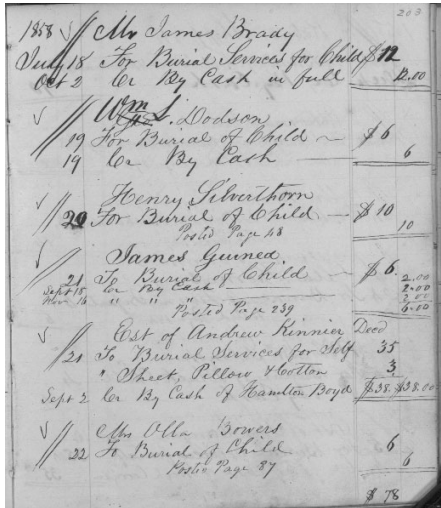 203
1858 Mr James Brady
July 18 For Burial Services for Child $12
Oct 2 Cr By Cash in full 12.00
Wm L. Dodson
19 For Burial of Child $6
19 Cr By Cash 6
Henry Silverthorn
20 For Burial of Child $10
Posted Page 48 10
James Guined
21 To Burial of Child $6.
Sept 18 Cr By Cash 2.00
Nov 16 " " " 2.00
2.00
Posted Page 239 6.00
Est of Andrew Kinnier Decd
21 To Burial Services for Self 35
" Sheet, Pillow & Cotton 3
Sept 2 Cr By Cash of Hamilton Boyd $38. $38.00
Mr Olla Bowers
22 To Burial of Child 6
Posted Page 87 6
$78